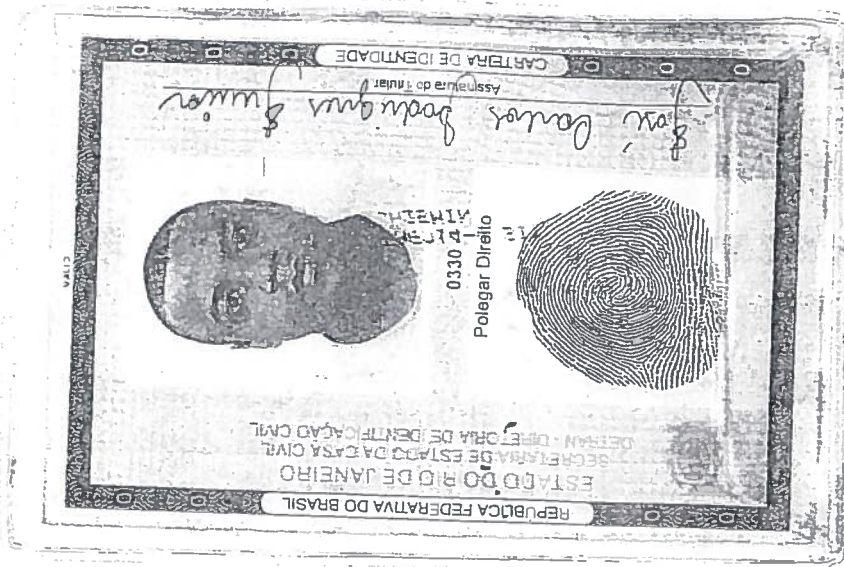 REPÚBLICA FEDERATIVA DO BRASIL
ESTADO DO RIO DE JANEIRO
SECRETARIA DE ESTADO DA CASA CIVIL
DETRAN - DIRETORIA DE IDENTIFICAÇÃO CIVIL
0330
Polegar Direito
José Carlos Rodrigues Junior
Assinatura do Titular
CARTEIRA DE IDENTIDADE